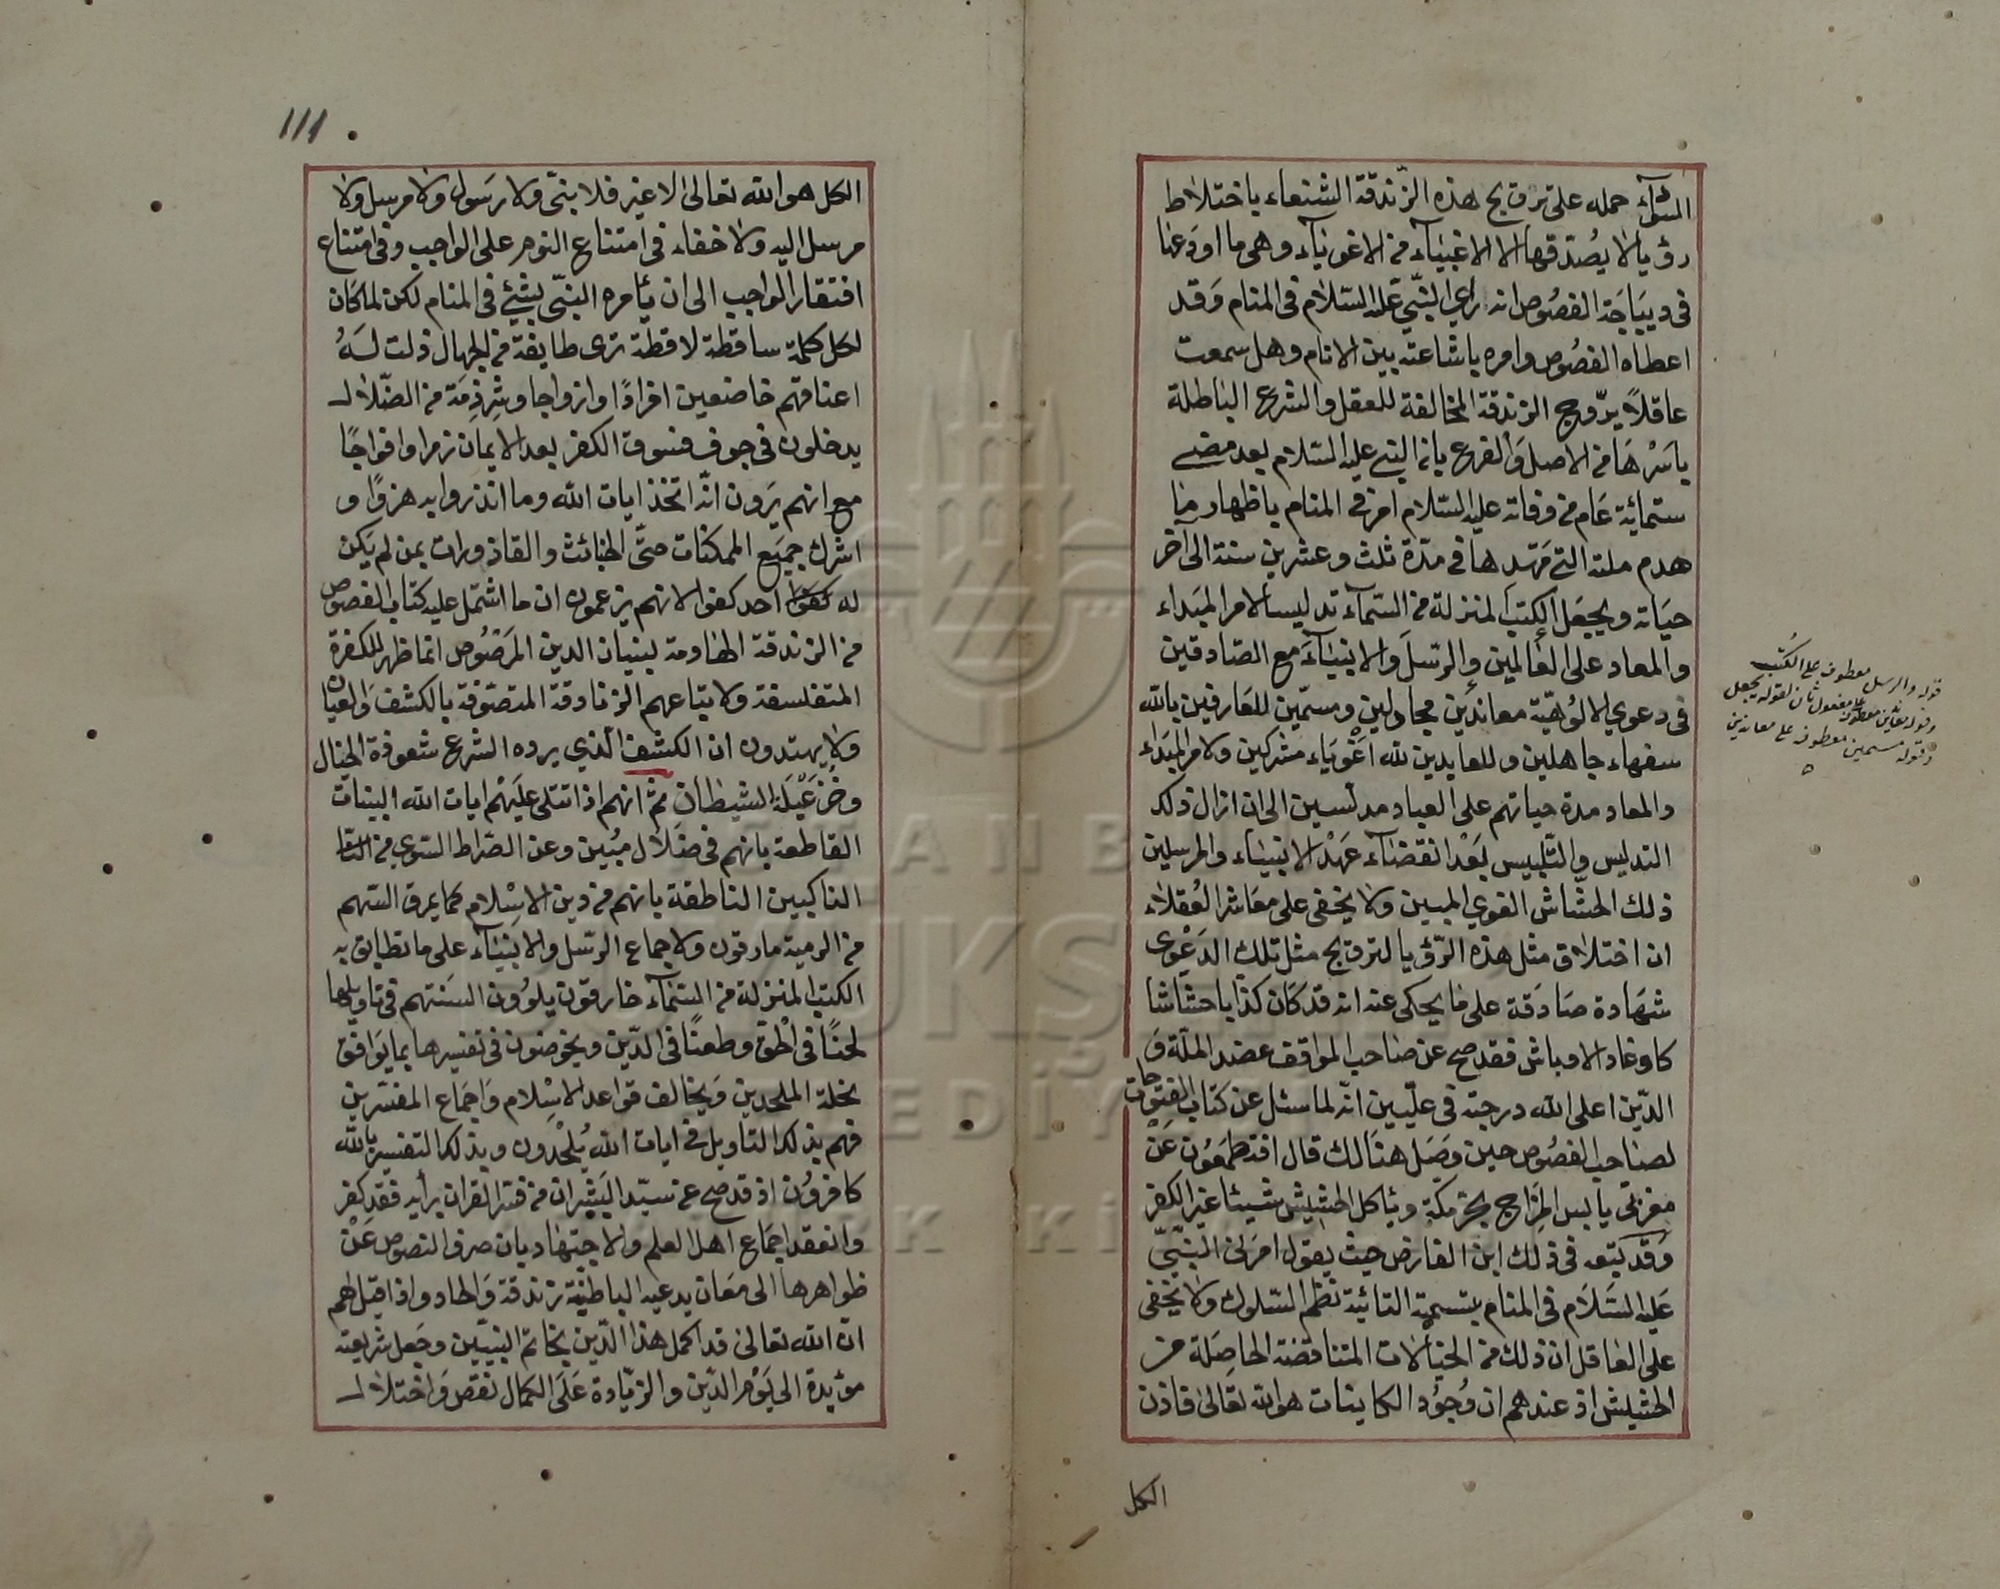 السوآء حمله على ترويج هذه الزندقة الشنعاء باختلاط
رؤيا لا يصدقها الا الاغبيآء من الاغويآء وهى ما اودعها
فى ديباجة الفصوص انه راي النبي عليه السلام فى المنام وقد
اعطاه الفصوص وامره باشاعته بين الانام وهل سمعت
عاقلاً يروج الزندقة المخالفة للعقل والشرع الباطلة
باسرها من الاصل والفرع بان النبي عليه السلام بعد مضى
ستمائة عام من وفاته عليه السلام امر فى المنام باظهار ما
هدم ملته التي مهدها فى مدة ثلث وعشرين سنة الى آخر
حياته ويجعل الكتب المنزلة من السمآء تدليسا لامر المبداء
والمعاد على العالمين والرسل والانبيآء مع الصادقين
فى دعوي الالوهية معاندين مجادلين ومسمين للعارفين بالله
سفهاء جاهلين وللعابدين لله اغوياء مشركين ولامر المبداء
والمعاد مدة حياتهم على العباد مدلسين الى ان ازال ذلك
التدليس والتلبيس بعد انقضآء عهد الانبياء والمرسلين
ذلك الحشاش الغوي المبين ولا يخفى على معاشر العقلاء
ان اختلاق مثل هذه الرؤيا لترويج مثل تلك الدعوى
شهادة صادقة على ما يحكى عنه انه قد كان كذابا حشاشا
كاوغاد الاوباش فقد صح عن صاحب المواقف عضد الملة و
الدين اعلى الله درجته فى عليين انه لما سئل عن كتاب الفتوحات
لصاحب الفصوص حين وصل هنالك قال افتطمعون عن
مغربى يابس المزاج بحر مكة وياكل الحشيش شيئا غير الكفر
وقد تبعه فى ذلك ابن الفارض حيث يقول امرنى النبي
عليه السلام فى المنام بتسمية التائية نظم السلوك ولا يخفى
على العاقل ان ذلك من الخيالات المتناقضة الحاصلة من
الحشيش اذ عندهم ان وجود الكاينات هو الله تعالى فاذن
الكل
قوله والرسل معطوف على الكتب
وقوله معاندين معطوف على مفعول ثان لقوله يجعل
وقوله مسمين معطوف على معاندين
111
الكل هو الله تعالى لا غير فلا نبى ولا رسول ولا مرسل ولا
مرسل اليه ولا خفاء فى امتناع النوم على الواجب وفى امتناع
افتقار الواجب الى ان يأمره النبى بشئ فى المنام لكن لما كان
لكل كلمة ساقطة لاقطة ترى طايفة من الجهال ذلت له
اعناقهم خاضعين افرادًا وازواجا وشرذمة من الضلال
يدخلون فى جوف فسوق الكفر بعد الايمان زمرا وافواجًا
مع انهم يرون انه اتخذ ايات الله وما انذروا به هزوًا و
اشرك جميع الممكنات حتى الخبائث والقاذورات بمن لم يكن
له كفوا احد كفوا لانهم يزعمون ان ما اشتمل عليه كتاب الفصوص
من الزندقة الهادمة لبنيان الدين المرصوص انما ظهر للكفرة
المتفلسفة ولاتباعهم الزنادقة المتصوفة بالكشف والعيان
ولا يهتدون ان الكشف الذي يرده الشرع شعوذة الخيال
وخزعبيلة الشيطان ثم انهم اذا تتلى عليهم ايات الله البينات
القاطعة بانهم فى ضلال مبين وعن الصراط السوي من
الناكبين الناطقة بانهم من دين الاسلام كما يمرق السهم
من الرمية مارقون ولاجماع الرسل والانبيآء على ما تطابق به
الكتب المنزلة من السمآء خارقون يلوون السنتهم فى تاويلها
لحنًا فى الحق وطعنًا فى الدين ويخوضون فى تفسيرها بما يوافق
نحلة الملحدين ويخالف قواعد الاسلام واجماع المفسرين
فهم بذلك التاويل فى ايات الله يلحدون وبذلك التفسير بالله
كافرون اذ قد صح عن سيد البشر ان من فسر القران برأيه فقد كفر
وانعقد اجماع اهل العلم والاجتهاد بان صرف النصوص عن
ظواهرها الى معان يدعيه الباطنية زندقة والحاد واذا قيل لهم
ان الله تعالى قد اكمل هذا الدين بخاتم النبيين وجعل شريعته
مؤبدة الى يوم الدين والزيادة على الكمال نقص واختلال